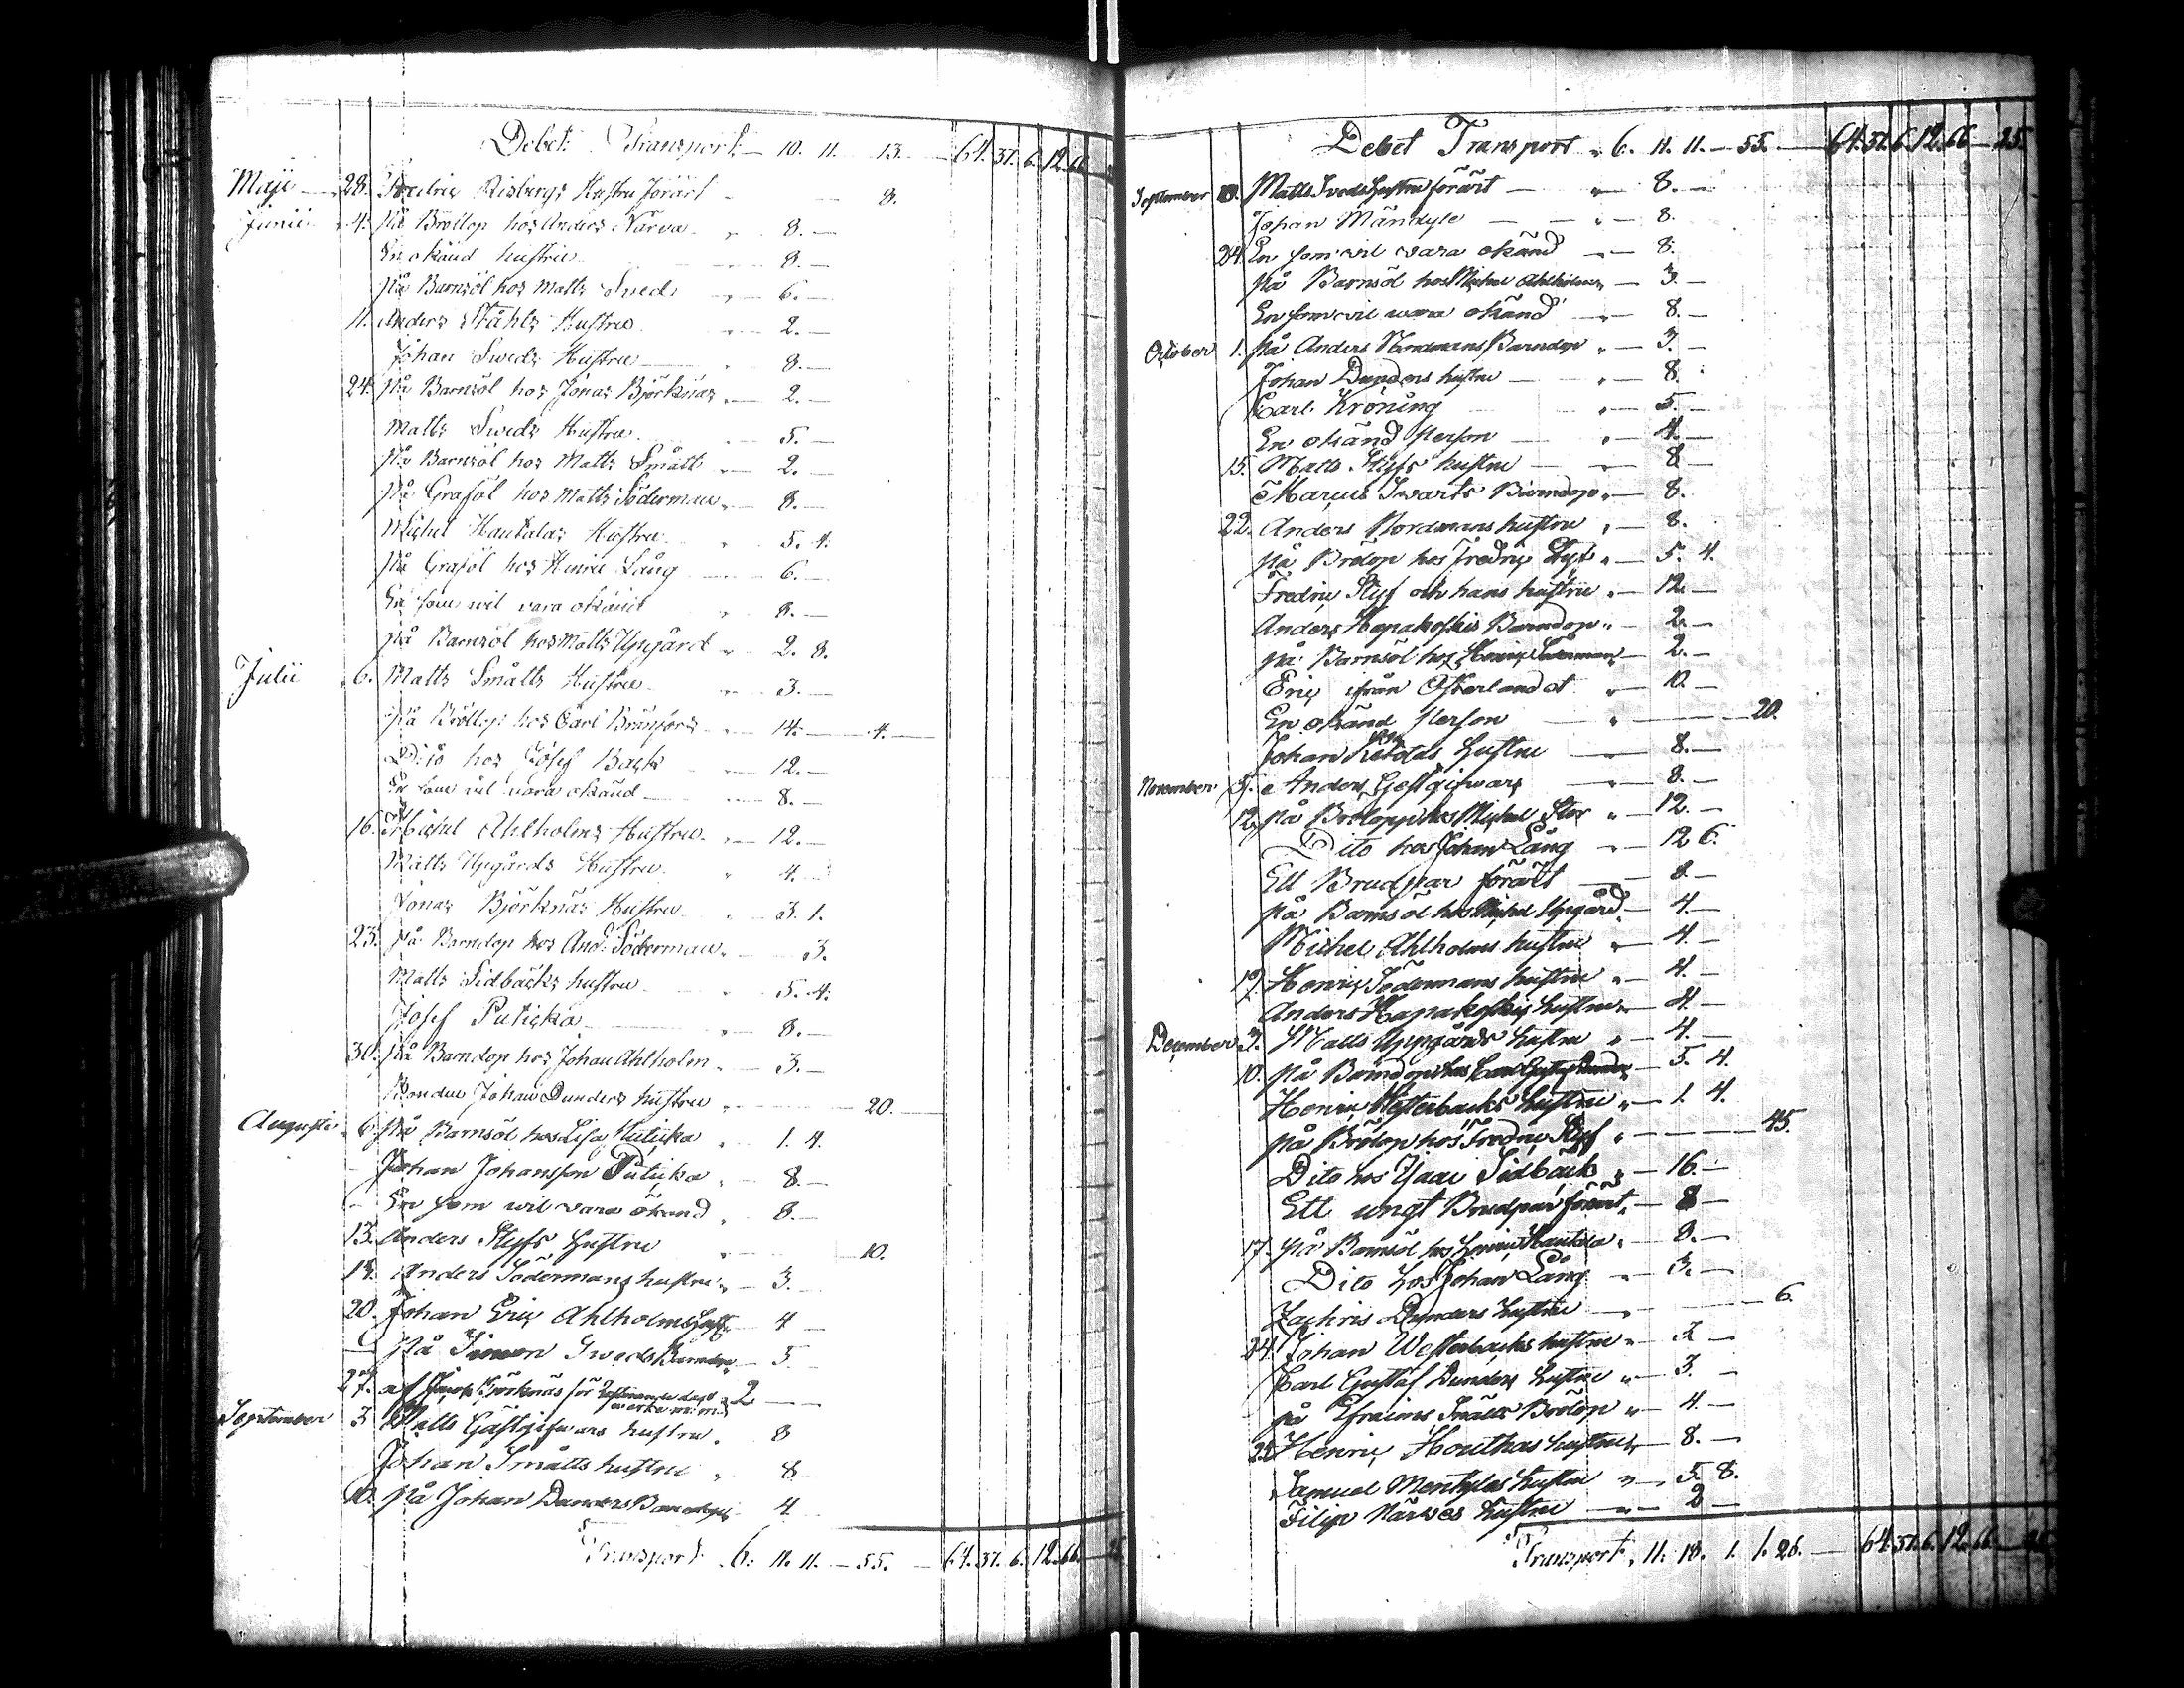 Debet Transport — 10. 11. — 13. — 64. 37. 6. 12. 66.
Maji — 28. Fredric Risbergs Hustru förärt — 8.
Junii 4. På Bröllop hos Anders Närva „ 8. —
En okänd hustru 8. —
På Barnsöl hos Matts Sveds „ 6. —
11. Anders Ståhls Hustru „ 2. —
Johan Sweds Hustru 8. —
24. På Barnsöl hos Jonas Björknäs „ 2. —
Matts Sweds Hustru 5. —
På Barnsöl hos Matts Smått „ 2. —
På Grafsöl hos Matts Söderman „ 8. —
Michel Hautalas Hustru „ 5. 4.
På Grafsöl hos Henric Lång 6. —
En som wil vara okänd „ 8. —
På Barnsöl hos Matts Upgård „ 2. 8.
Julii 6. Matts Smålts Hustru „ 3. —
På Bröllop hos Carl Bränfors „ 14. — 4. —
Dito hos Josef Back „ 12. —
En som vil vara okänd — 8. —
16. Michel Ahlholms Hustru „ 12. —
Matts Upgårds Hustru „ 4. —
Jonas Björknäs Hustru „ 3. 1.
23. På Barndop hos And: Söderman „ 3.
Matts Sidbäcks hustru „ 5. 4.
Josef Puticka — „ 8. —
30. På Barndop hos Johan Ahlholm „ 3. —
Bonden Johan Dunders hustru „ — 20. —
Augusti 6. På Barnsöl hos Lisa Puticka „ 1. 4.
Johan Johansson Puticka „ 8. —
En som wil vara okand „ 8. —
13. Anders Styfs Hustru „ 10.
Anders Södermans hustru „ 3.
20. Johan Eric Ahlholms Hust: 4 —
På Simon Sweds Barndop „ 5. —
27. af Jacob Björknäs för 2 — —
September 3 Matts Gästgifwars hustru „ 8
Johan Smålts hustru „ 8
10. På Johan Dunders Barndop 4
Transport „ 6. 11. 11. — 55. — 64. 37. 6. 12. 66. —
Debet Transport „ 6. 11. 11. — 55. — 64. 37. 6. 12. 66 — 25.
September Matts Sveds Hustru förärt — „ — 8. —
Johan Mändyle — „ — 8.
24. En som vil vara okänd — 8.
På Barnsöl hos Michel Ahlholm „ — 3. —
En som vil wara okänd — 8. —
October 1. På Anders Nordmans Barndop „ — 3. —
Johan Dunders hustru — „ — 8.
Carl Kröning „ — 5. —
En okänd Person — „ — 4. —
15. Matts Styfs hustru — 8
Marcus Swarts Barndop „ — 8.
22. Anders Nordmans hustru „ — 8.
På Brölop hos Fredric Styf „ — 5. 4.
Fredric Styf och hans hustru „ — 12. —
Anders Hapakoskis Barndop „ — 2. —
På Barnsöl hos Henric Söderman — 2. —
Eric ifrån Österlandet „ — 10. —
En okänd Person „ — 20.
Johan hustru — 8. —
November 5. Anders Gestgifwars — 8. —
12. På Brölopp hos Michel Stor „ — 12. —
Dito hos Johan Lång „ — 12 6.
Ett Brudpar förärt — 8. —
På Barnsöl hos Michel Upgård — 4. —
Michel Ahlholms hustru „ — 4. —
19. Henric Södermans hustru „ — 4. —
Anders Hapakoskis hustru „ — 4. —
December 3. Matts Uppgårds hustru „ — 4. —
10. På Barndop hos Carl Gustaf Dunder — 5. 4.
Henric Westerbacks hustru „ — 1. 4.
På Brölop hos Fredric Styf „ — 45.
Dito hos Isaac Sidbäck „ — 16. —
Ett ungt Brudpar förärt „ — 8 —
17. På Barnsöl hos Henric Hautala „ — 8. —
Dito hos Johan Lång „ — 3. —
Zachris Dunders hustru — „ — 6.
24. Johan Westerbacks hustru „ — —
Carl Gustaf Dunders hustru „ — 3. —
På Efraims Smålts Brölop „ — 4. —
Henric hustru „ — 8. —
Samuel Mentylas hustru „ — 5. 8.
Filip Närwes hustru — „ — 2 —
Transport „ 11. 18. 1. 1. 26. — 64. 37. 6. 12. 66. —